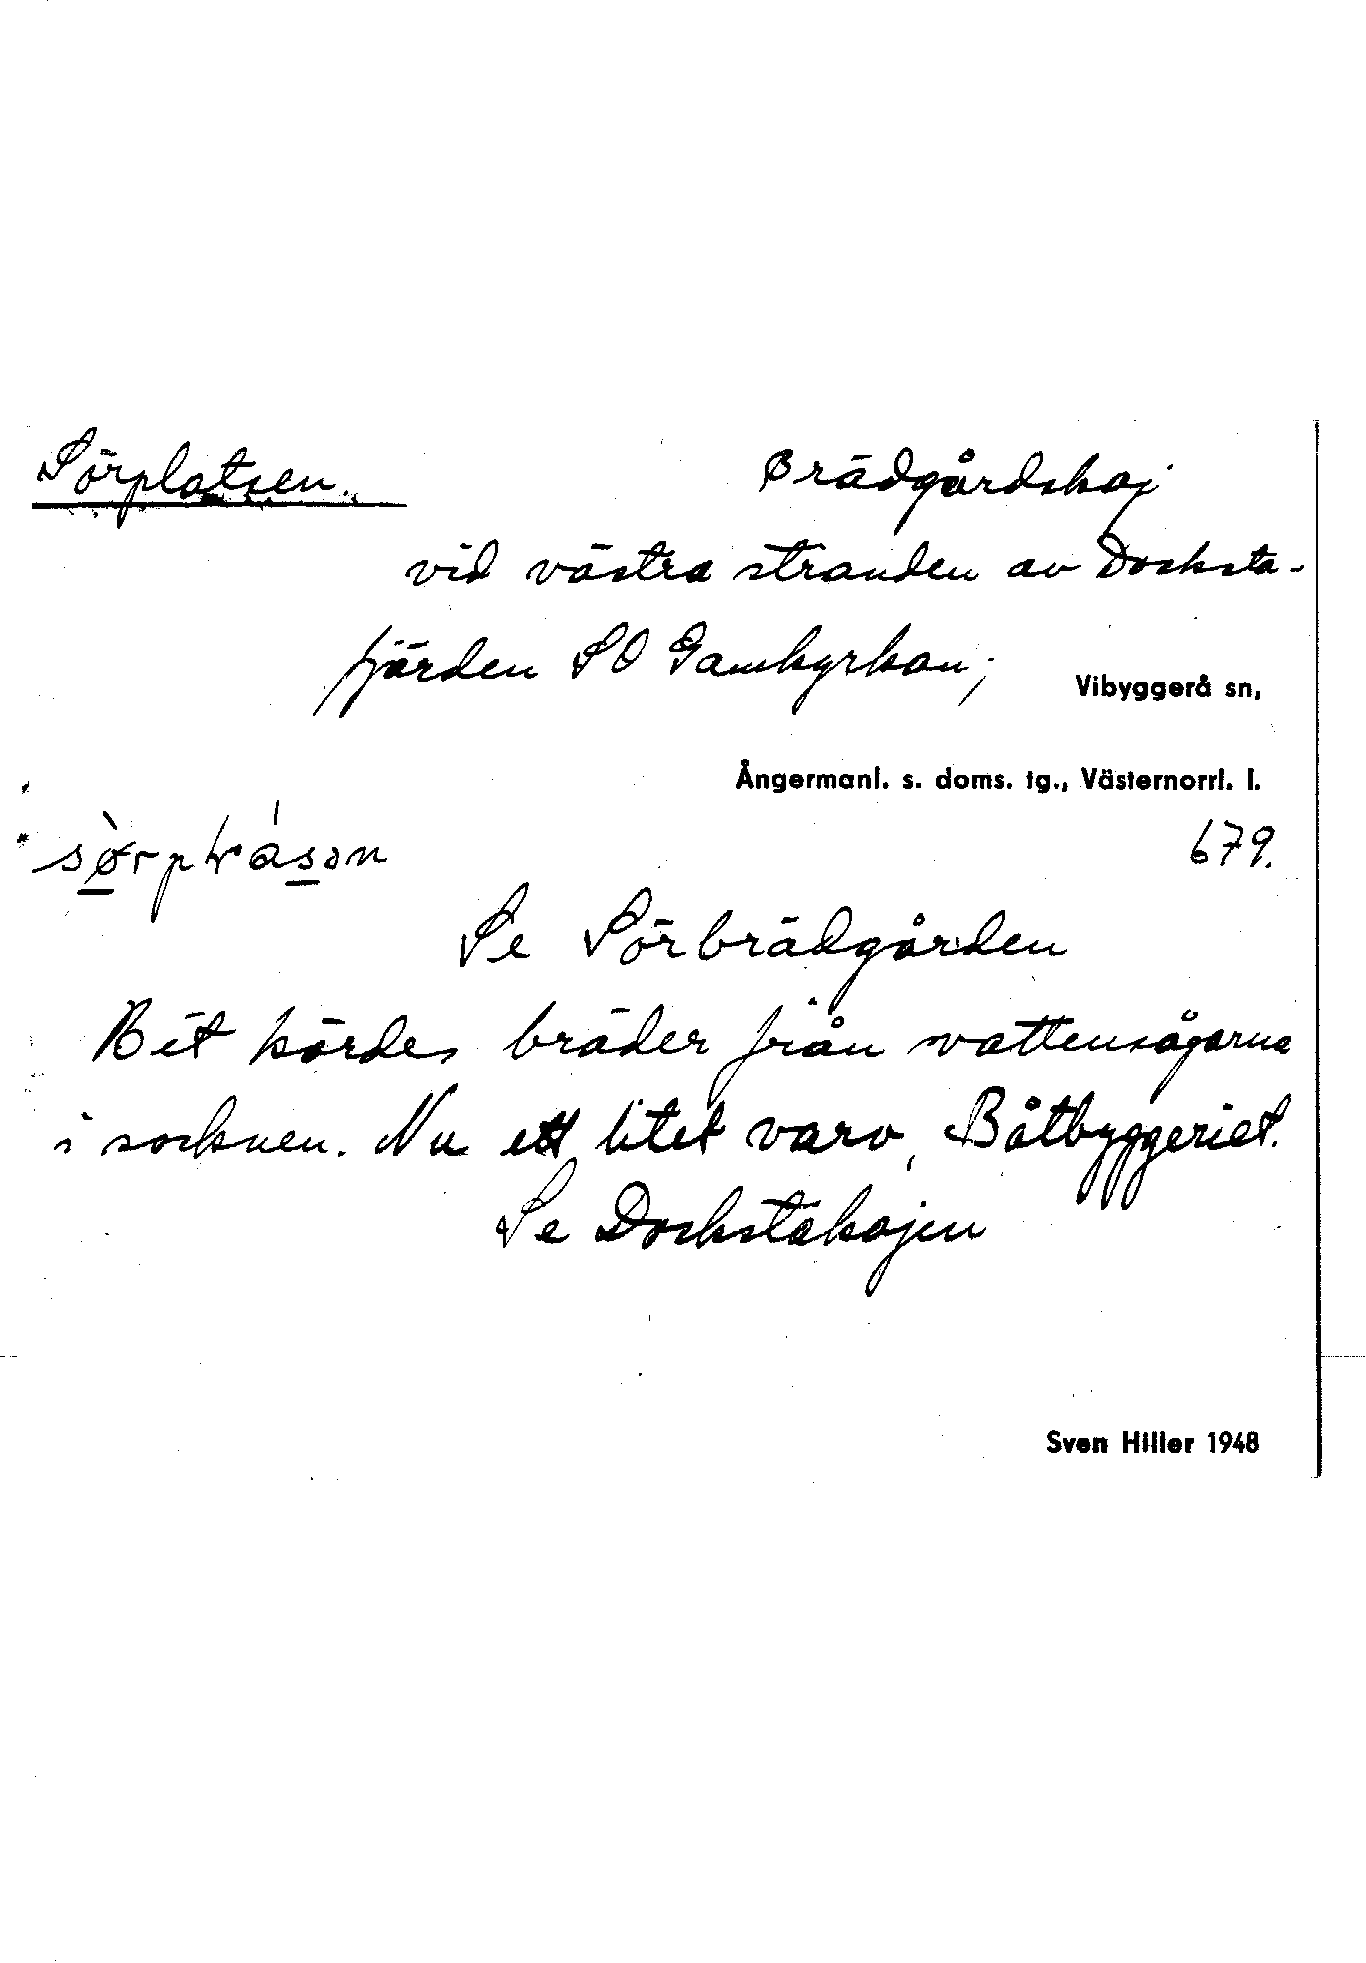 Sörplatsen. Brädgårdskaj
vid västra stranden av Docksta-
fjärden SO Gamkyrkan;
Vibyggerå sn,
Ångermanl. s. doms. tg., Västernorrl. l.
679.
Se Sörbrädgården
Hit kördes bräder från vattensågarna
i socknen. Nu ett litet varv, Båtbyggeriet.
Se Dockstakajen
Sven Hiller 1948